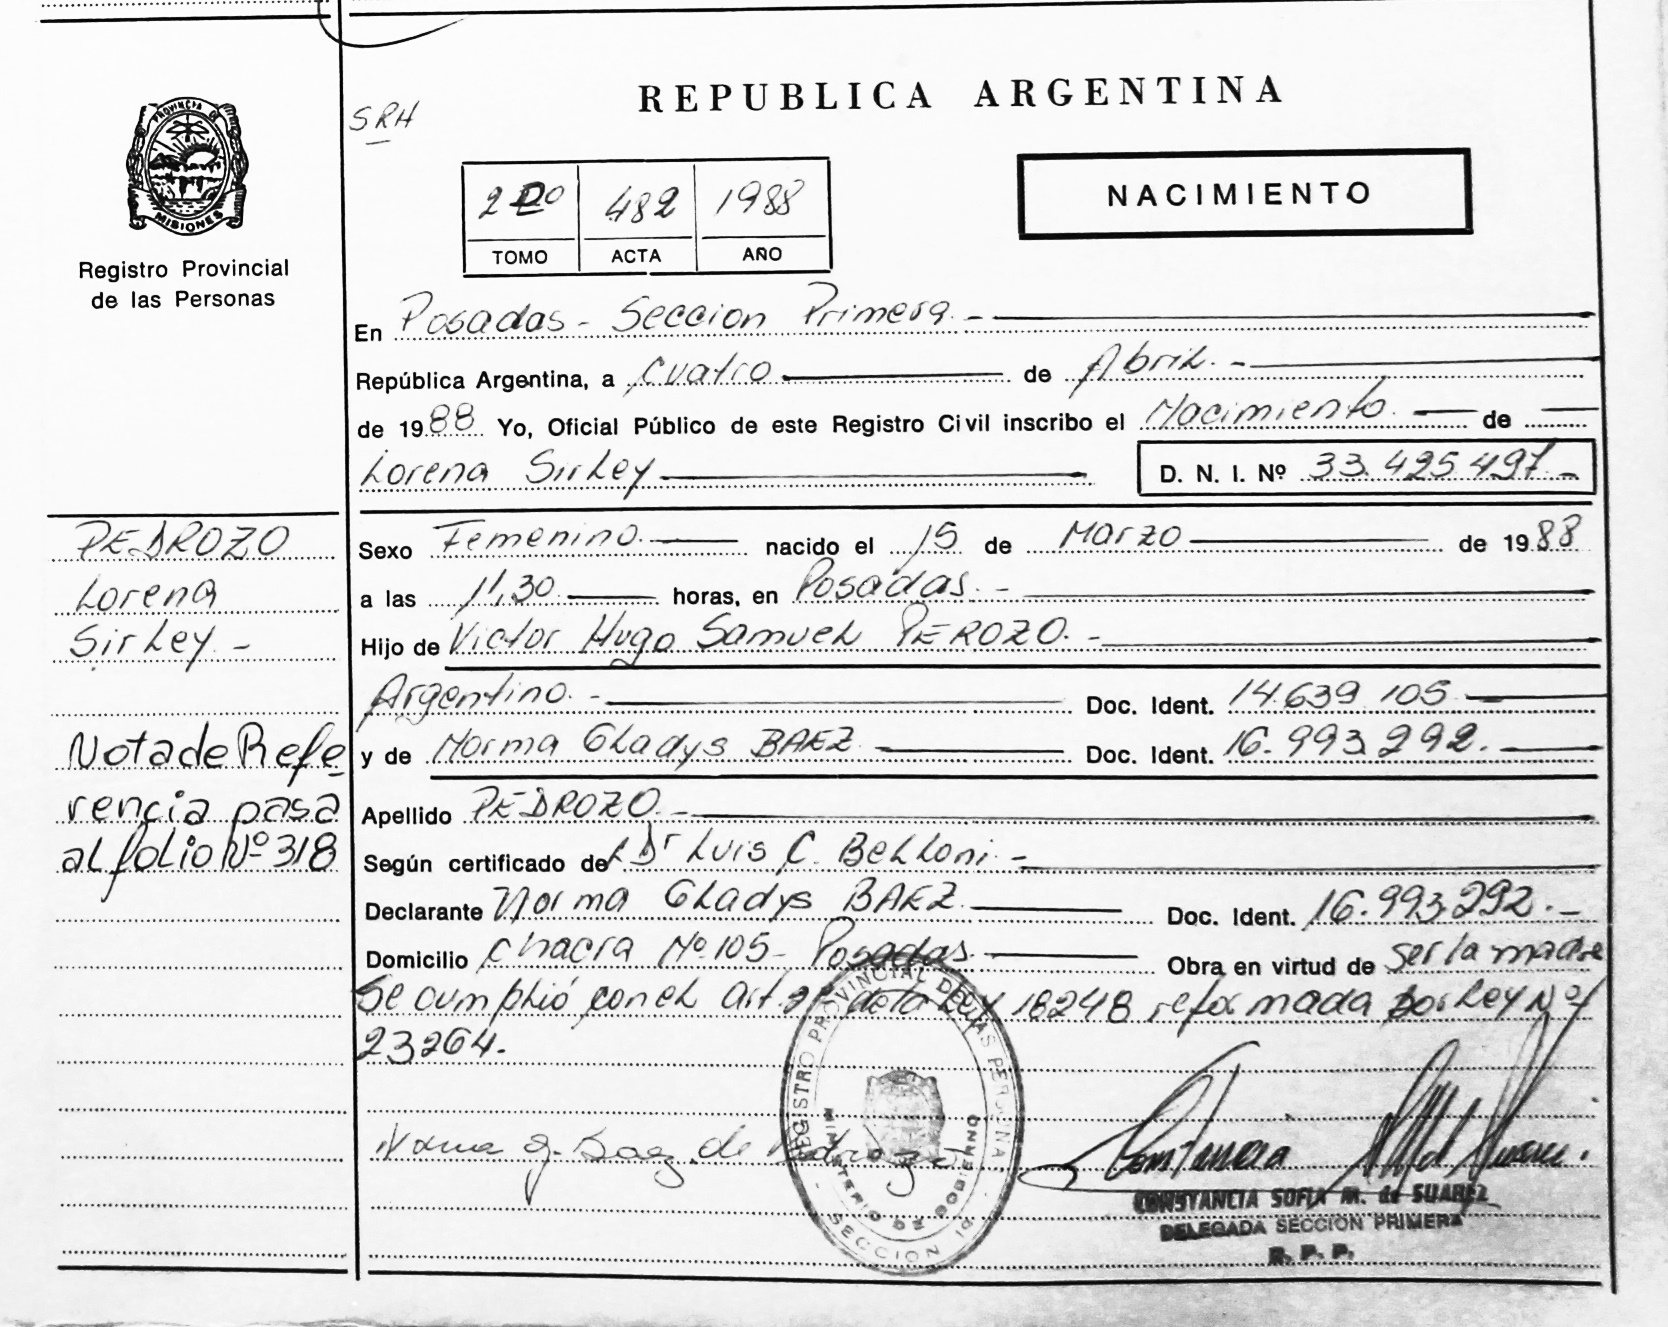 PROVINCIA DE
MISIONES
Registro Provincial
de las Personas
SRH
REPUBLICA ARGENTINA
NACIMIENTO
2do 482 1988
TOMO ACTA AÑO
En Posadas - Seccion Primera. -
República Argentina, a Cuatro de Abril. -
de 1988 Yo, Oficial Público de este Registro Civil inscribo el Nacimiento de
Lorena Sirley D. N. I. Nº 33.425.497.-
PEDROZO
Lorena
Sirley -
Sexo Femenino. nacido el 15 de Marzo de 1988
a las 11,30 horas, en Posadas. -
Hijo de Victor Hugo Samuel PEROZO. -
Argentino. - Doc. Ident. 14.639.105
y de Norma Gladys BAEZ Doc. Ident. 16.993.292.
Nota de Refe
rencia pasa
al folio Nº 318
Apellido PEDROZO. -
Según certificado del Dr Luis C. Belloni. -
Declarante Norma Gladys BAEZ. Doc. Ident. 16.993.292. -
Domicilio Chacra Nº 105 - Posadas. Obra en virtud de ser la madre
Se cumplió con el art. de la Ley 18248 reformada por Ley Nº
23264.
Norma G. Baez de Pedrozo
REGISTRO PROVINCIAL DE LAS PERSONAS
MINISTERIO DE GOBIERNO
SECCION 1ª
CONSTANCIA SOFIA M. de SUAREZ
DELEGADA SECCION PRIMERA
R. P. P.